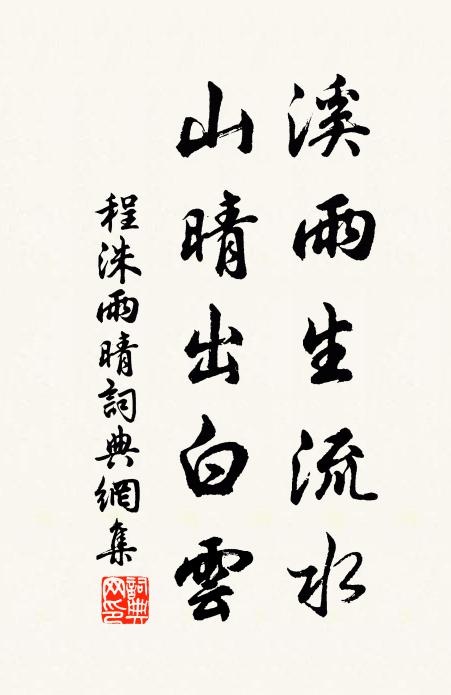 溪雨生流水
山晴出白雲
程洙雨晴詞典網集
詞典網印